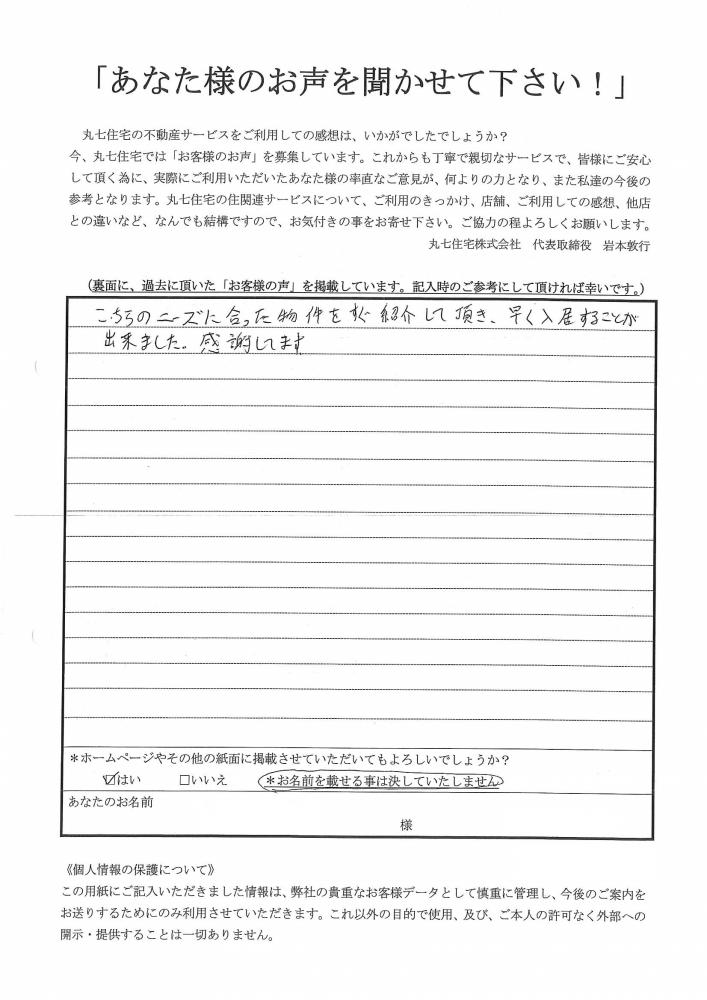 「あなた様のお声を聞かせて下さい！」
丸七住宅の不動産サービスをご利用しての感想は、いかがでしたでしょうか？
今、丸七住宅では「お客様のお声」を募集しています。これからも丁寧で親切なサービスで、皆様にご安心
して頂く為に、実際にご利用いただいたあなた様の率直なご意見が、何よりの力となり、また私達の今後の
参考となります。丸七住宅の住関連サービスについて、ご利用のきっかけ、店舗、ご利用しての感想、他店
との違いなど、なんでも結構ですので、お気付きの事をお寄せ下さい。ご協力の程よろしくお願いします。
丸七住宅株式会社　代表取締役　岩本敦行
（裏面に、過去に頂いた「お客様の声」を掲載しています。記入時のご参考にして頂ければ幸いです。）
こちらのニーズに合った物件をすぐ紹介して頂き、早く入居することが
出来ました。感謝してます
＊ホームページやその他の紙面に掲載させていただいてもよろしいでしょうか？
☑はい　□いいえ　＊お名前を載せる事は決していたしません
あなたのお名前
様
《個人情報の保護について》
この用紙にご記入いただきました情報は、弊社の貴重なお客様データとして慎重に管理し、今後のご案内を
お送りするためにのみ利用させていただきます。これ以外の目的で使用、及び、ご本人の許可なく外部への
開示・提供することは一切ありません。